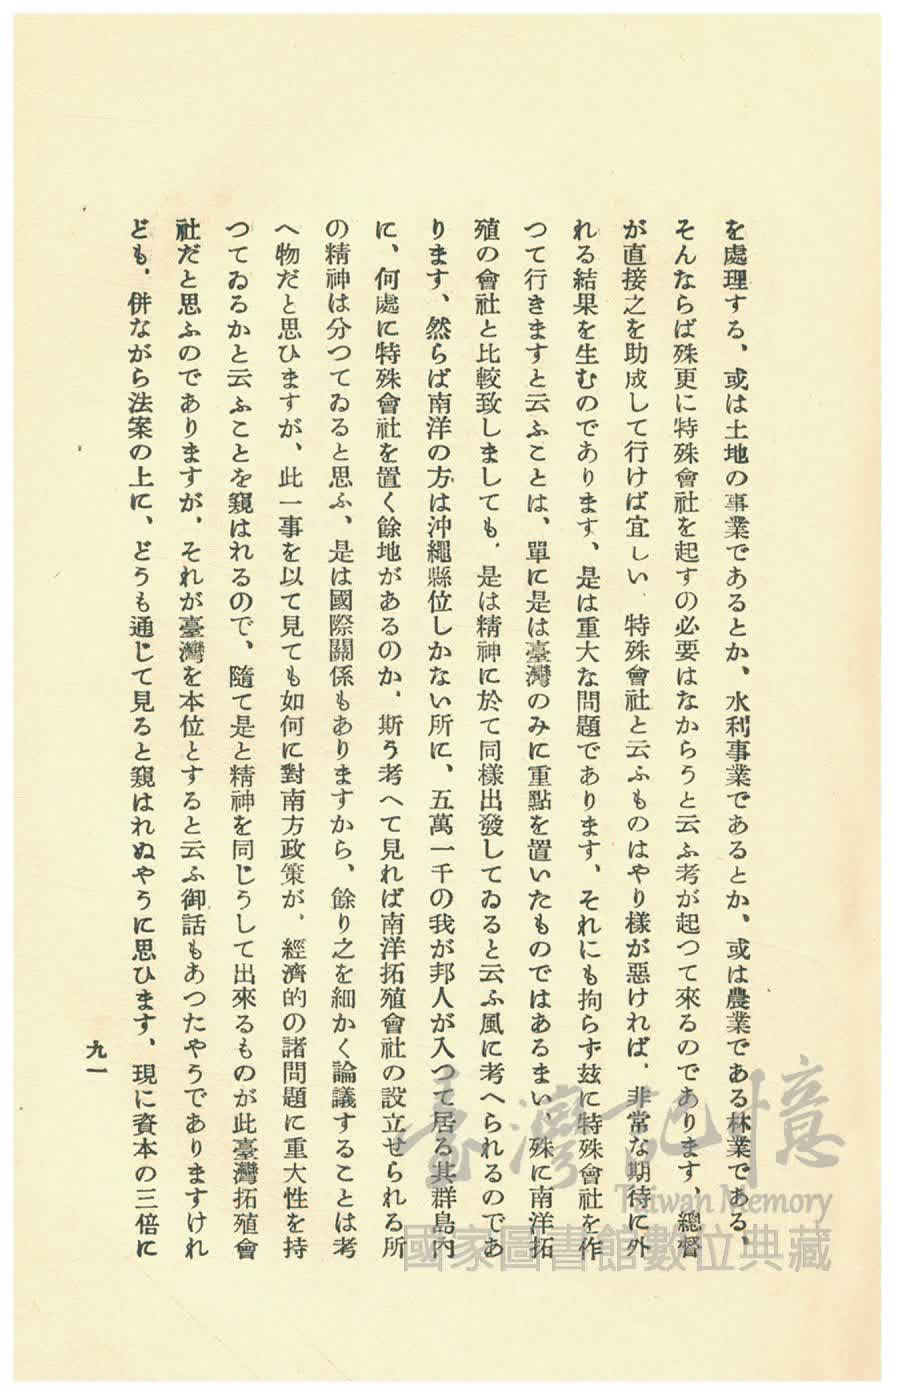 を處理する、或は土地の事業であるとか、水利事業であるとか、或は農業である林業である、
そんならば殊更に特殊會社を起すの必要はなからうと云ふ考が起つて來るのであります、總督
が直接之を助成して行けば宜しい、特殊會社と云ふものはやり樣が惡ければ、非常な期待に外
れる結果を生むのであります、是は重大な問題であります、それにも拘らず玆に特殊會社を作
つて行きますと云ふことは、單に是は臺灣のみに重點を置いたものではあるまい、殊に南洋拓
殖の會社と比較致しましても、是は精神に於て同樣出發してゐると云ふ風に考へられるのであ
ります、然らば南洋の方は沖繩縣位しかない所に、五萬一千の我が邦人が入つて居る其群島內
に、何處に特殊會社を置く餘地があるのか、斯う考へて見れば南洋拓殖會社の設立せられる所
の精神は分つてゐると思ふ、是は國際關係もありますから、餘り之を細かく論議することは考
へ物だと思ひますが、此一事を以て見ても如何に對南方政策が、經濟的の諸問題に重大性を持
つてゐるかと云ふことを窺はれるので、隨て是と精神を同じうして出來るものが此臺灣拓殖會
社だと思ふのでありますが、それが臺灣を本位とすると云ふ御話もあつたやうでありますけれ
ども、併ながら法案の上に、どうも通じて見ると窺はれぬやうに思ひます、現に資本の三倍に
九一
臺灣記憶
Taiwan Memory
國家圖書館數位典藏